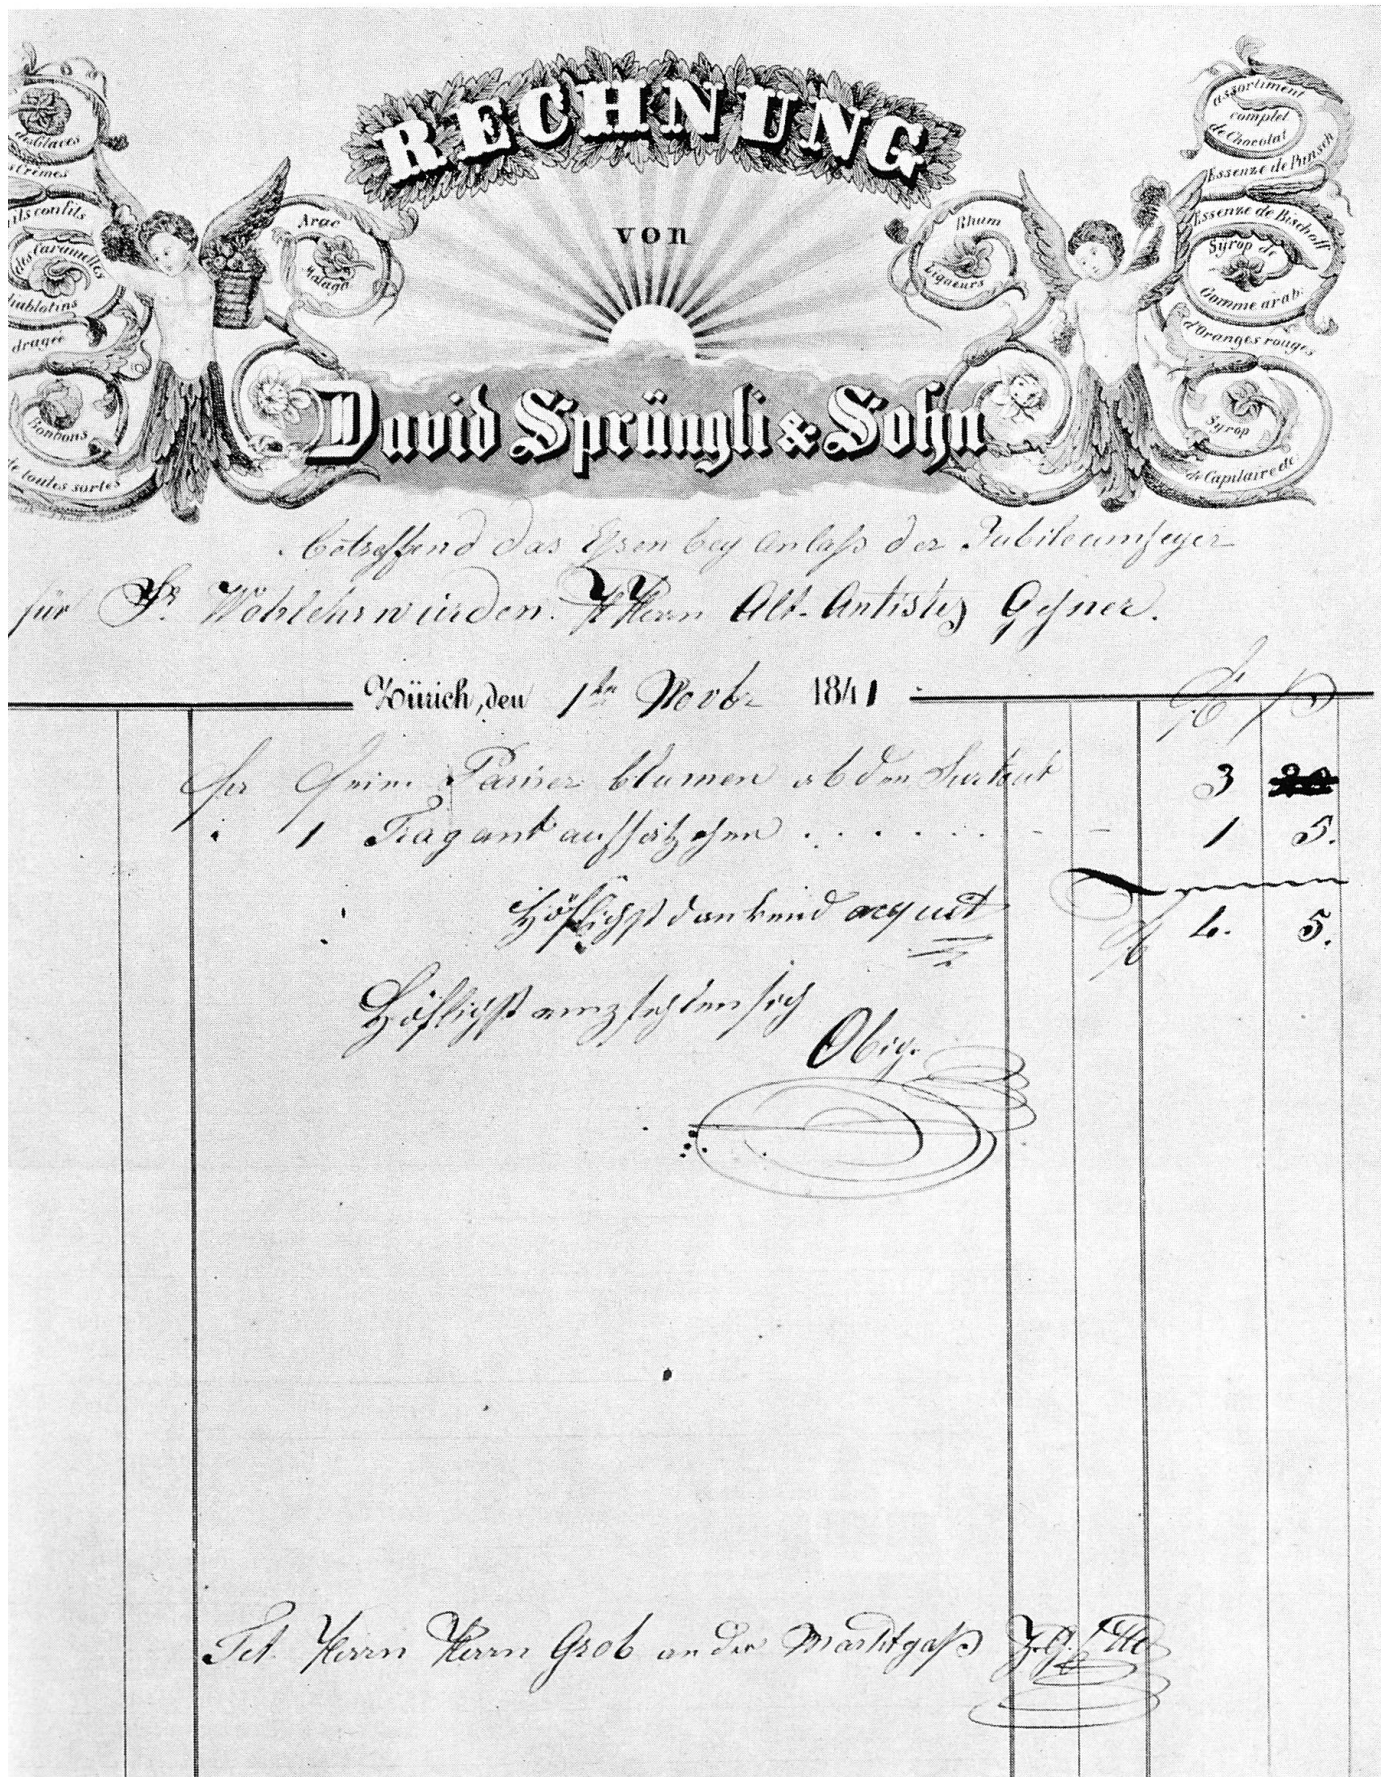 RECHNUNG
von
David Sprüngli & Sohn
des Glaces
Crêmes
confits
des Caramelles
diablotins
dragée
Bonbons
de toutes sortes
Arac
Malaga
Rhum
Liqueurs
assortiment
complet
de Chocolat
Essenze de Punsch
Essenze de Bischoff
Syrop de
Gomme arab:
d'Oranges rouges
Syrop
de Capilaire etc
betreffend das Essen bey Anlass der Jubileumsfeyer
für Sr. Wohlehrwürden. HHerrn Alt-Antistes Gessner.
Zürich, den 1ten Novbr 1841
für feine Pariser blumen ab den Surtout 3
" 1 Tragant aufsätzchen . . . . . . 1 5.
Höflichst dankend acquit 4. 5.
Höflichst empfehlen sich
Obige
Tit. Herrn Herrn Grob an der Marktgass